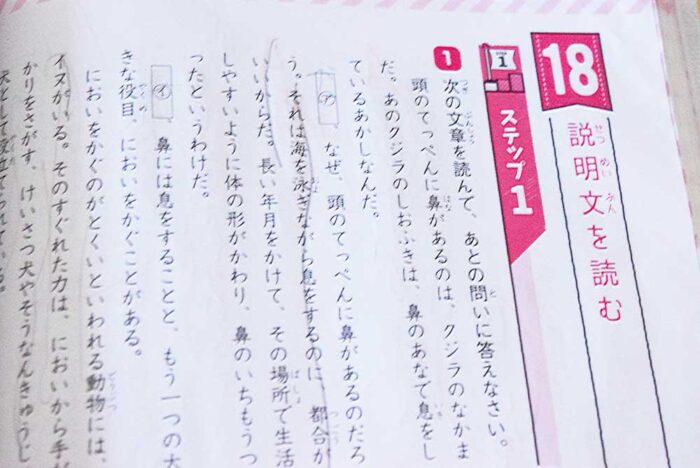 18
説明文を読む
せつめいぶん
STEP 1
ステップ1
1 次の文章を読んで、あとの問いに答えなさい。
頭のてっぺんに鼻があるのは、クジラのなかま
だ。あのクジラのしおふきは、鼻のあなで息をし
ているあかしなんだ。
ア、なぜ、頭のてっぺんに鼻があるのだろ
う。それは海を泳ぎながら息をするのに、都合が
いいからだ。長い年月をかけて、その場所で生活
しやすいように体の形がかわり、鼻のいちもうつ
ったというわけだ。
イ、鼻には息をすることと、もう一つの大
きな役目、においをかぐことがある。
においをかぐのがとくいといわれる動物には、
イヌがいる。そのすぐれた力は、においから手が
かりをさがす、けいさつ犬やそうなんきゅうじ